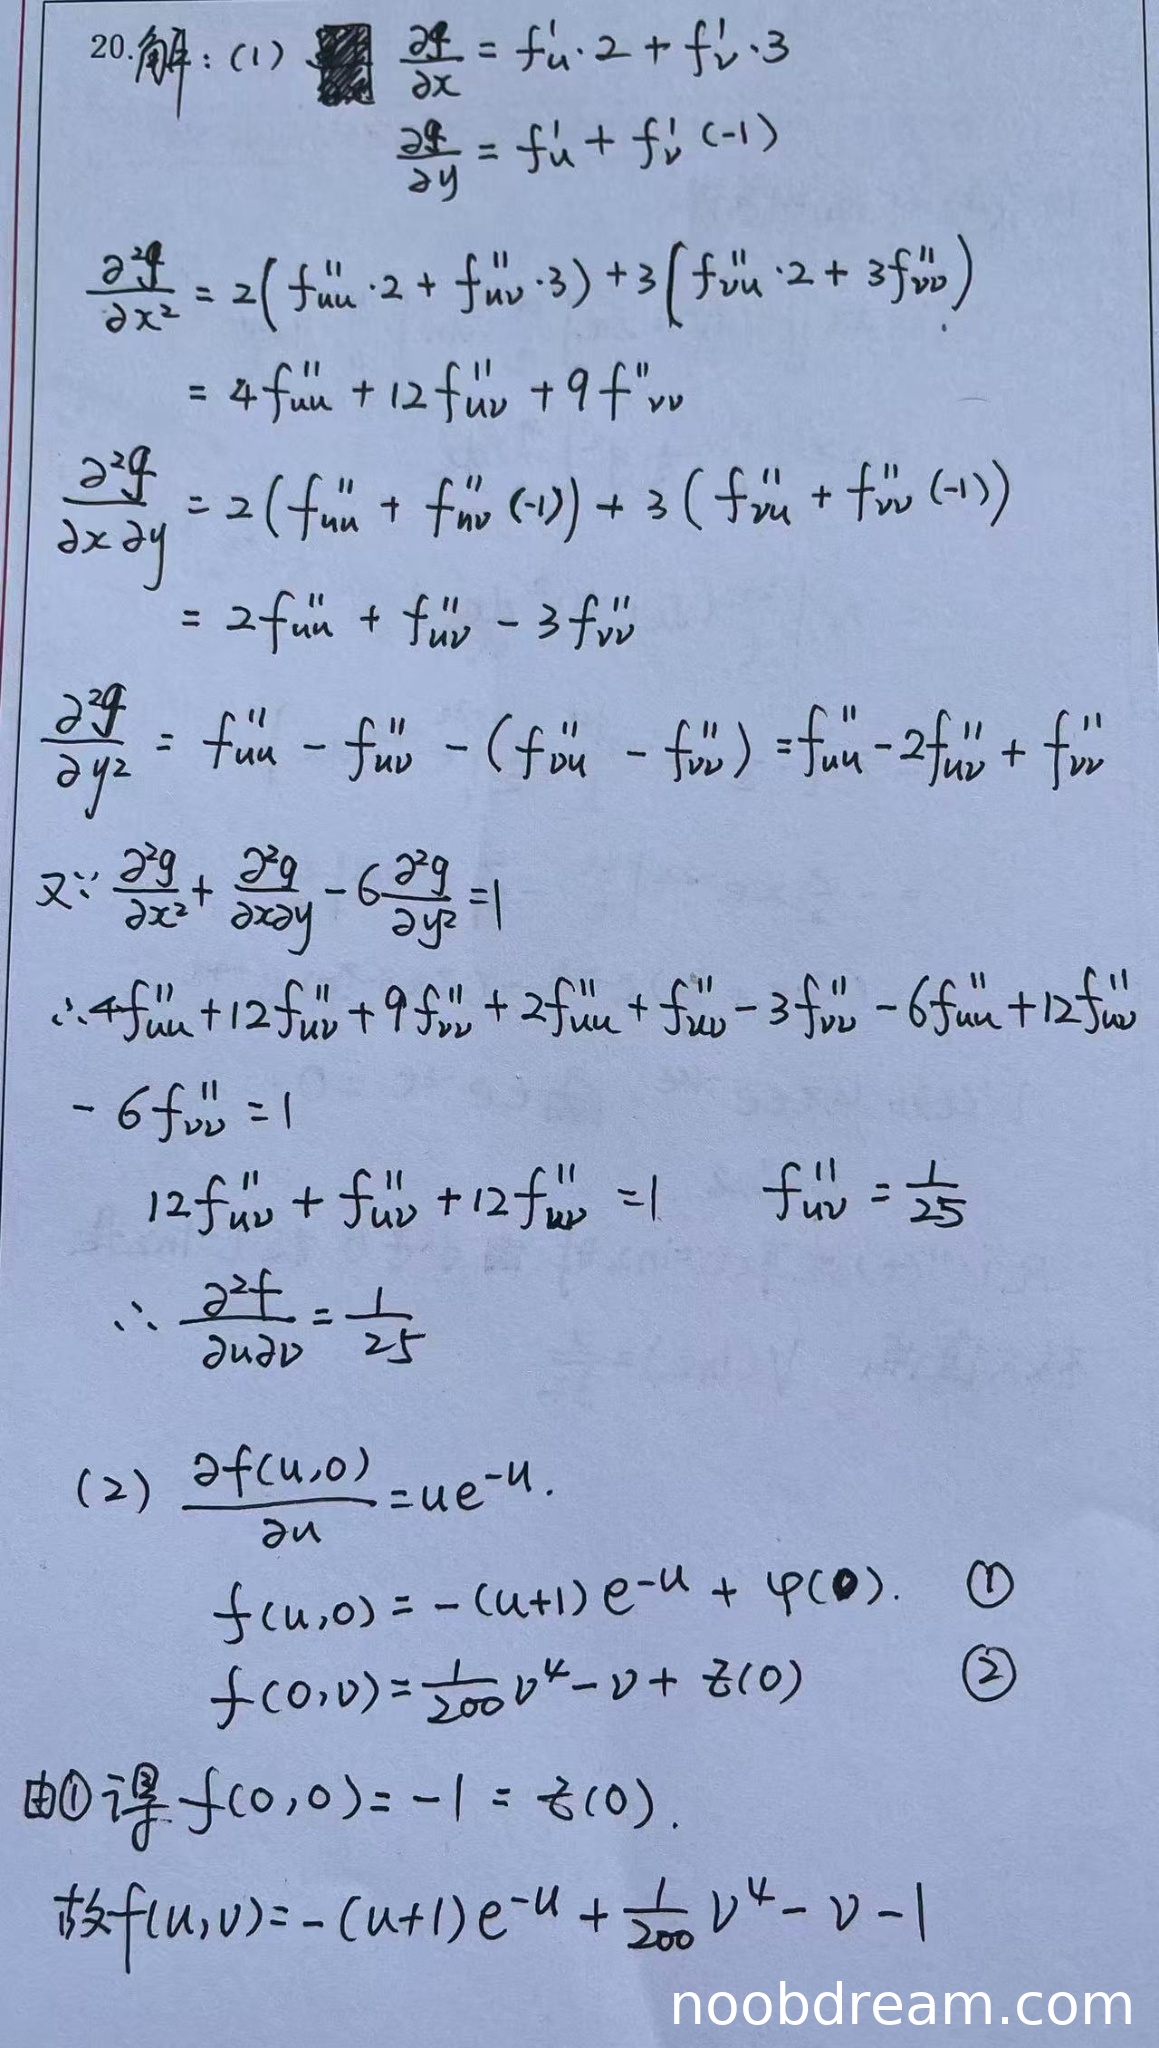 20.解:(1) ∂g/∂x = f'u·2 + f'v·3
∂g/∂y = f'u + f'v (-1)
∂²g/∂x² = 2(f''uu·2 + f''uv·3) + 3(f''vu·2 + 3f''vv)
= 4f''uu + 12f''uv + 9f''vv
∂²g/∂x∂y = 2(f''uu + f''uv (-1)) + 3(f''vu + f''vv (-1))
= 2f''uu + f''uv - 3f''vv
∂²g/∂y² = f''uu - f''uv - (f''vu - f''vv) = f''uu - 2f''uv + f''vv
又∵ ∂²g/∂x² + ∂²g/∂x∂y - 6∂²g/∂y² = 1
∴4f''uu + 12f''uv + 9f''vv + 2f''uu + f''uv - 3f''vv - 6f''uu + 12f''uv
- 6f''vv = 1
12f''uv + f''uv + 12f''uv = 1 f''uv = 1/25
∴ ∂²f/∂u∂v = 1/25
(2) ∂f(u,0)/∂u = ue^-u.
f(u,0) = -(u+1)e^-u + φ(0). ①
f(0,v) = 1/200 v⁴ - v + z(0) ②
由①得 f(0,0) = -1 = z(0).
故f(u,v) = -(u+1)e^-u + 1/200 v⁴ - v - 1
noobdream.com